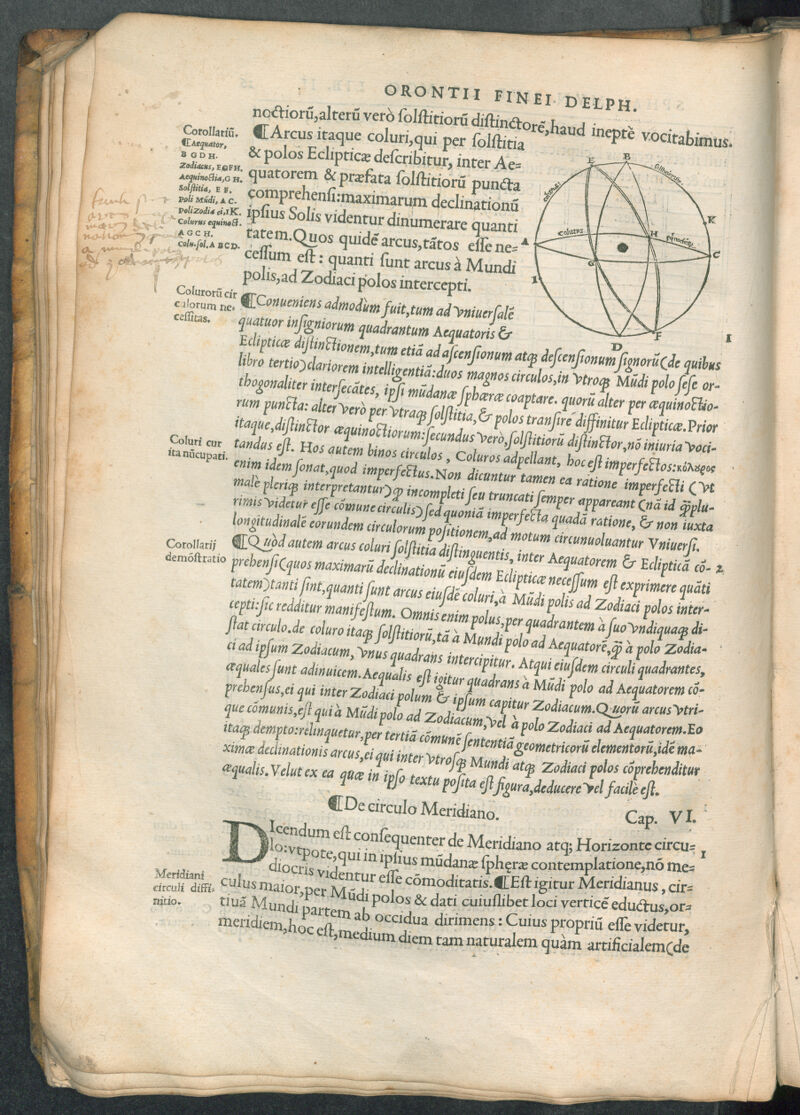 ORONTII FINEI DELPH.
noctiorũ,alterũ verò ſolſtitiorũ diſtinctorẽ,haud ineptè vocitabimus.
Corollariũ.
¶Aequator,
B G D H.
Zodiacus, E G F H.
Aequinoctia,G H.
Solſtitia, E F.
Poli Mũdi, A C.
Poli Zodia ci,I K.
Colurus equinoct.
A G C H.
Colu.ſol.A B C D.
¶Arcus itaque coluri,qui per ſolſtitia
& polos Eclipticæ deſcribitur, inter Ae-
quatorem & præfata ſolſtitiorũ puncta
comprehenſi:maximarum declinationũ
ipſius Solis videntur dinumerare quanti
tatem.Quos quidẽ arcus,tãtos eſſe ne-
ceſſum eſt: quanti ſunt arcus à Mundi
polis,ad Zodiaci polos intercepti.
E
B
K
A
Colurus
H
C
G
I
D
F
1
Colurorũ cir
culorum ne-
ceſſitas.
¶Conueniens admodùm fuit,tum ad vniuerſalẽ
quatuor inſigniorum quadrantum Aequatoris &
Eclipticæ diſtinctionem,tum etiã ad aſcenſionum atq; deſcenſionum ſignorũ(de quibus
libro tertio)clariorem intelligentiã:duos magnos circulos,in vtroq; Mũdi polo ſeſe or-
thogonaliter interſecãtes, ipſi mũdanæ ſphæræ coaptare. quorũ alter per æquinoctio-
rum puncta: alter verò per vtraq; ſolſtitia,& polos tranſire diffinitur Eclipticæ.Prior
itaque,diſtinctor æquinoctiorum:ſecundus verò,ſolſtitiorũ diſtinctor,nõ iniuria voci-
Coluri cur
ita nũcupati.
tandus eſt. Hos autem binos circulos, Coluros adpellant, hoc eſt imperfectos:κόλουρος
enim idem ſonat,quod imperfectus.Non dicuntur tamen ea ratione imperfecti (vt
malè pleriq; interpretantur)ꝙ incompleti ſeu truncati ſemper appareant (nã id q̃plu-
rimis videtur eſſe cõmune circulis)ſed quoniã imperfecta quadã ratione, & non iuxta
longitudinalẽ eorundem circulorum poſitionem,ad motum circunuoluantur Vniuerſi.
Corollarij
demõſtratio
¶Quòd autem arcus coluri ſolſtitia diſtinguentis, inter Aequatorem & Eclipticã cõ- 2
prehenſi(quos maximarũ declinationũ eiuſdem Eclipticæ neceſſum eſt exprimere quãti
tatem)tanti ſint,quanti ſunt arcus eiuſdẽ coluri,à Mũdi polis ad Zodiaci polos inter-
cepti:ſic redditur manifeſtum. Omnis enim polus,per quadrantem à ſuo vndiquaq; di-
ſtat circulo.de coluro itaq; ſolſtitiorũ,tã à Mundi polo ad Aequatorẽ,q̃ à polo Zodia-
ci ad ipſum Zodiacum, vnus quadrans intercipitur. Atqui eiuſdem circuli quadrantes,
æquales ſunt adinuicem.Aequalis eſt igitur quadrans à Mũdi polo ad Aequatorem cõ-
prehenſus,ei qui inter Zodiaci polum & ipſum capitur Zodiacum.Quorũ arcus vtri-
que cõmunis,eſt qui à Mũdi polo ad Zodiacum,vel à polo Zodiaci ad Aequatorem.Eo
itaq; dempto:relinquetur,per tertiã cõmunẽ ſententiã geometricorũ elementorũ,idẽ ma-
ximæ declinationis arcus,ei qui inter vtroſq; Mundi atq; Zodiaci polos cõprehenditur
æqualis.Velut ex ea quæ in ipſo textu poſita eſt figura,deducere vel facilè eſt.
¶De circulo Meridiano. Cap. VI.
DIcendum eſt conſequenter de Meridiano atq; Horizonte circu- 1
lo:vtpote,qui in ipſius mũdanæ ſphęræ contemplatione,nõ me-
diocris videntur eſſe cõmoditatis.¶Eſt igitur Meridianus, cir-
Meridiani
circuli diffi-
nitio.
culus maior,per Mũdi polos & dati cuiuſlibet loci verticẽ eductus,or-
tiuã Mundi partem ab occidua dirimens: Cuius propriũ eſſe videtur,
meridiem,hoc eſt,medium diem tam naturalem quàm artificialem(de